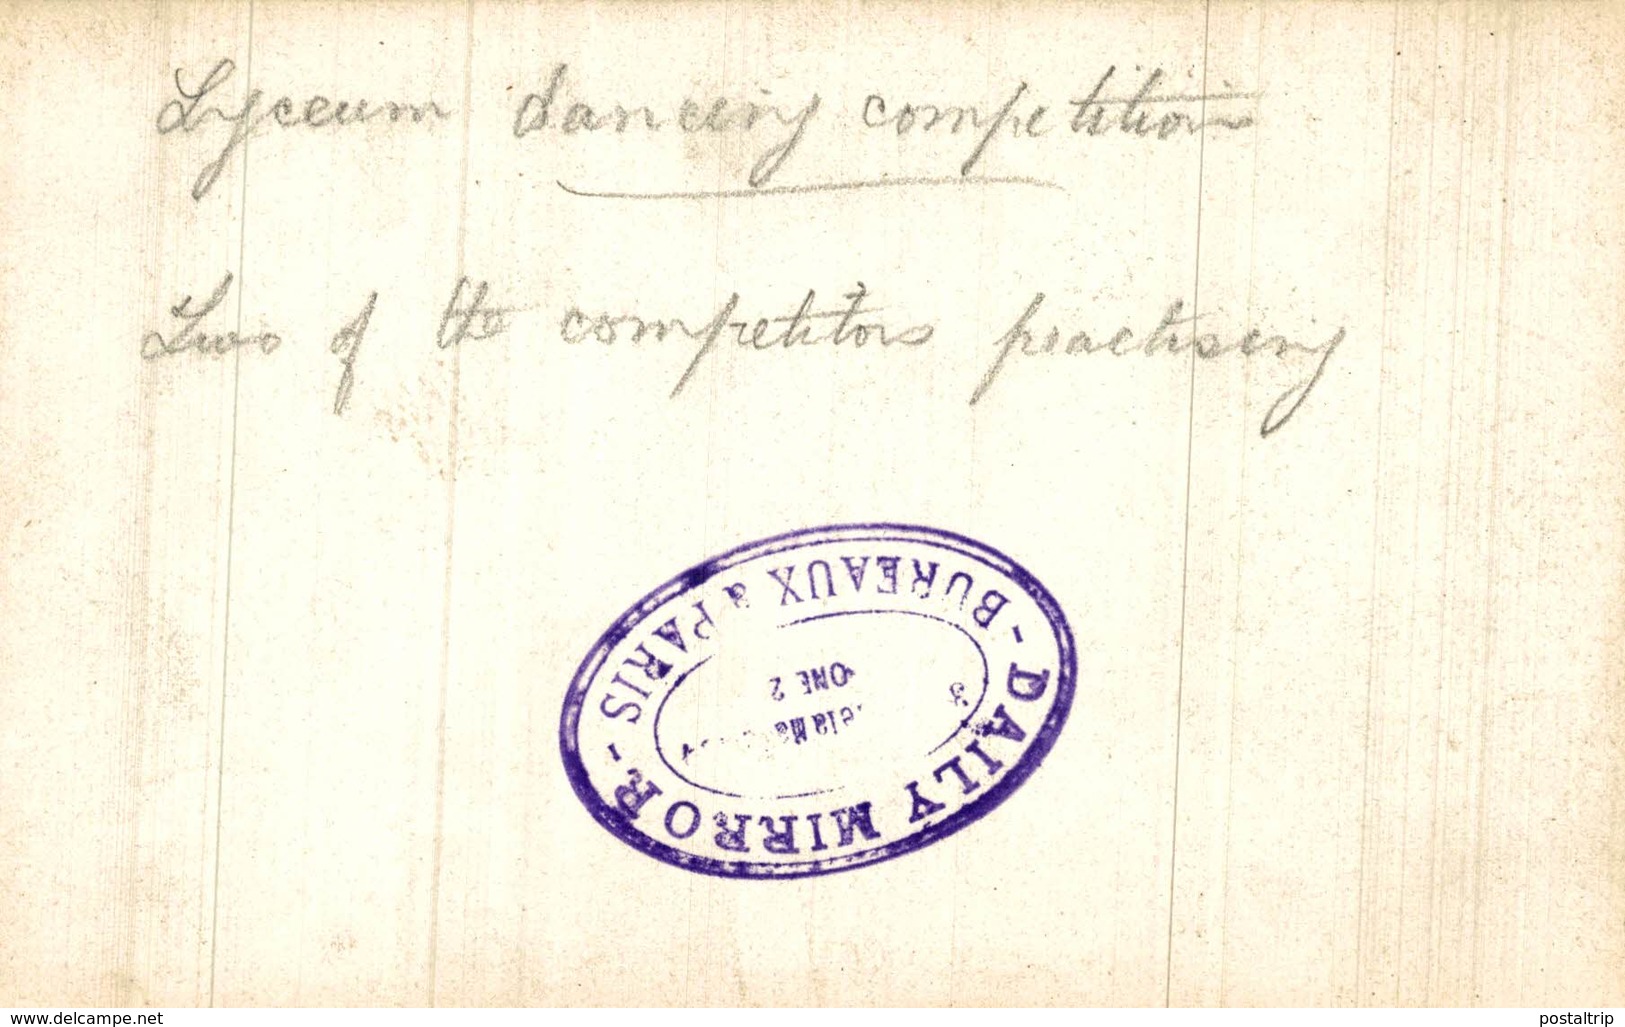 Lyceum dancing competition
Two of the competitors practising
DAILY MIRROR
- BUREAUX à PARIS -
ONE 2
www.delcampe.net
postaltrip